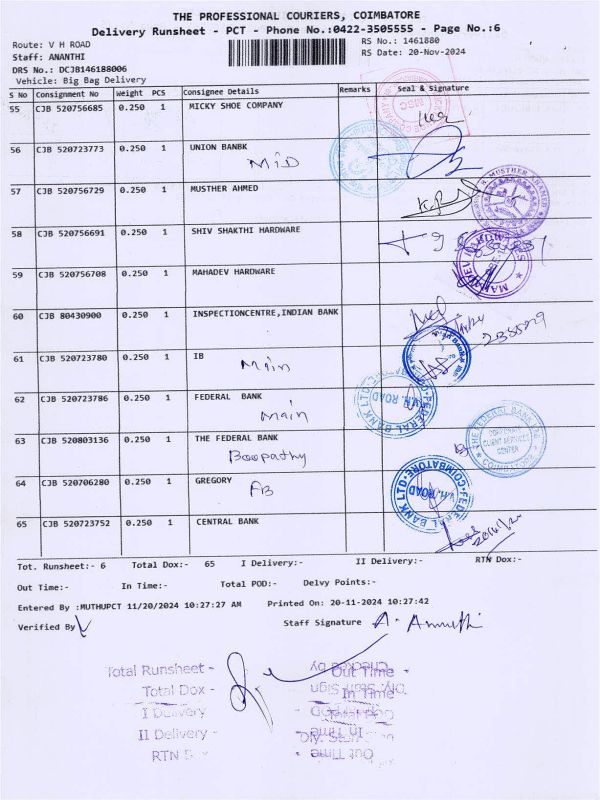 THE PROFESSIONAL COURIERS, COIMBATORE
Delivery Runsheet - PCT - Phone No.:0422-3505555 - Page No.:6
Route: V H ROAD RS No.: 1461880
Staff: ANANTHI RS Date: 20-Nov-2024
DRS No.: DCJB146188006
Vehicle: Big Bag Delivery
S No Consignment No Weight PCS Consignee Details Remarks Seal & Signature
55 CJB 520756685 0.250 1 MICKY SHOE COMPANY
56 CJB 520723773 0.250 1 UNION BANBK
MiD
57 CJB 520756729 0.250 1 MUSTHER AHMED
58 CJB 520756691 0.250 1 SHIV SHAKTHI HARDWARE
59 CJB 520756708 0.250 1 MAHADEV HARDWARE
60 CJB 80430900 0.250 1 INSPECTIONCENTRE,INDIAN BANK
61 CJB 520723780 0.250 1 IB
Main
62 CJB 520723786 0.250 1 FEDERAL BANK
Main
FEDERAL BANK LTD
V.H. ROAD
63 CJB 520803136 0.250 1 THE FEDERAL BANK
Boopathy
THE FEDERAL BANK LTD
CORPORATE
CLIENT SERVICES
CENTER
COIMBATORE
64 CJB 520706280 0.250 1 GREGORY
FB
FEDERAL BANK LTD COIMBATORE
V.H. ROAD
65 CJB 520723752 0.250 1 CENTRAL BANK
Tot. Runsheet:- 6 Total Dox:- 65 I Delivery:- II Delivery:- RTN Dox:-
Out Time:- In Time:- Total POD:- Delvy Points:-
Entered By :MUTHUPCT 11/20/2024 10:27:27 AM Printed On: 20-11-2024 10:27:42
Verified By Staff Signature A. Ananthi
Total Runsheet -
Total Dox -
I Delivery -
II Delivery -
Out Time -
In Time -